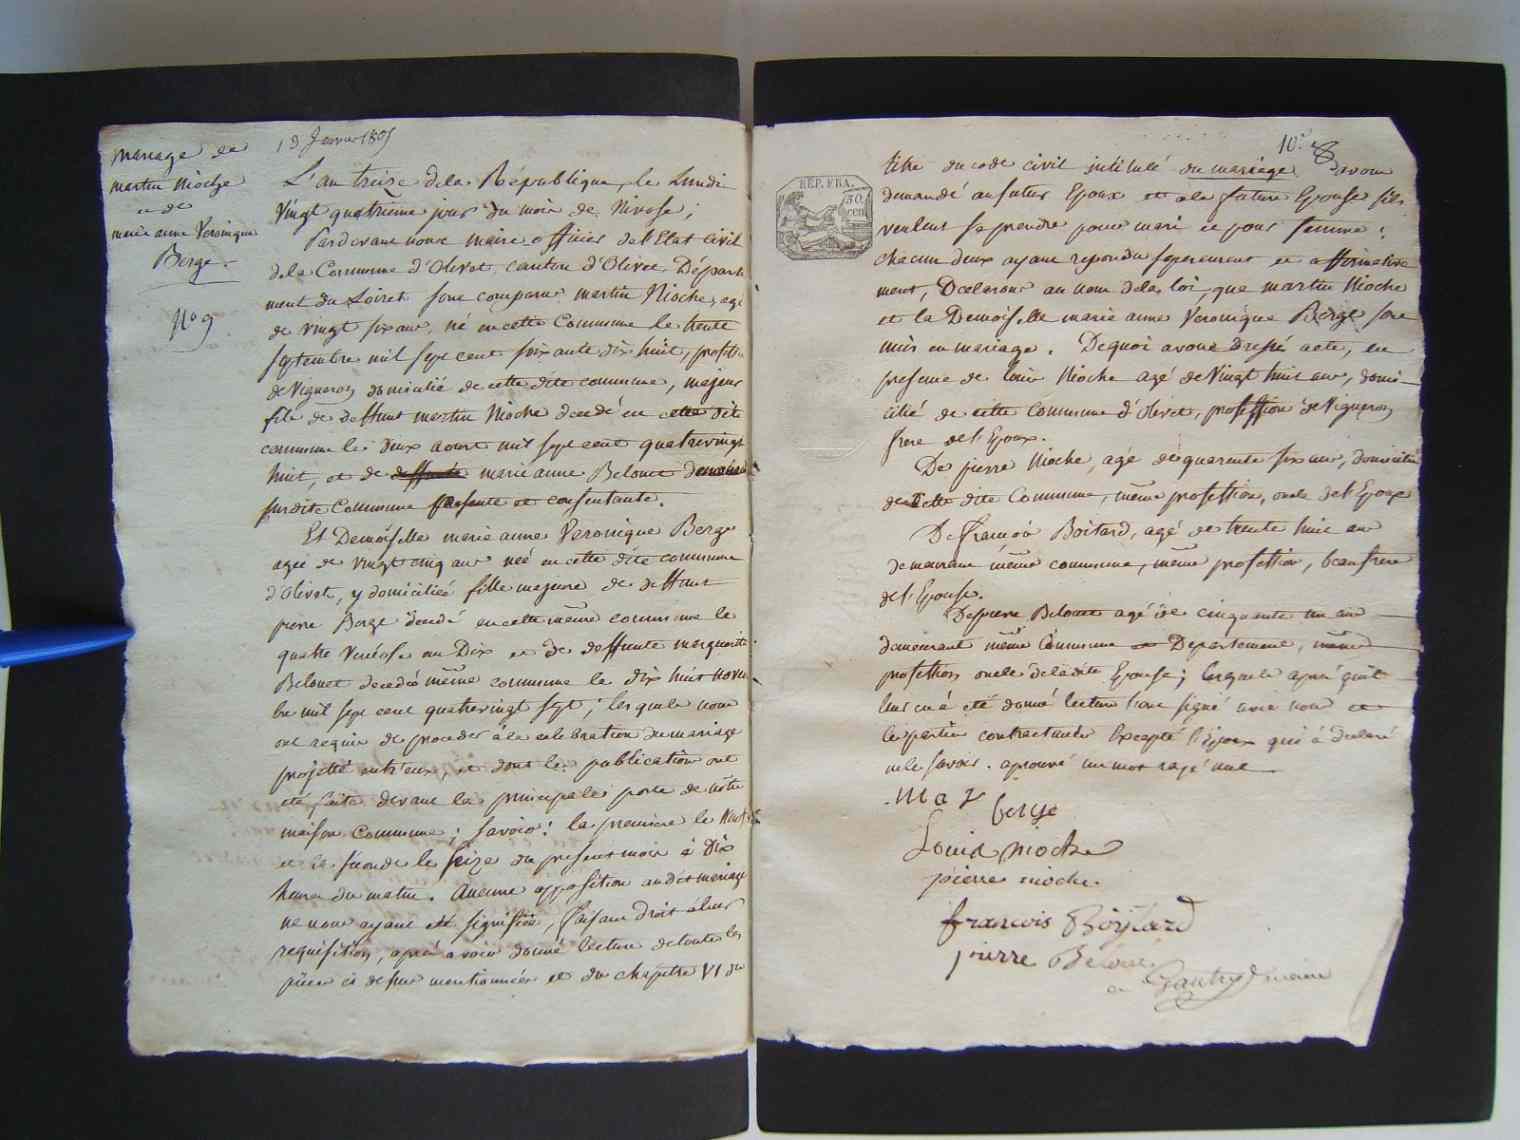 mariage de
martin Nioche
et de
marie anne Veronique
Berge.
No 9
13 Janvier 1805
L'an treize de la République, le Lundi
Vingt quatrieme jour du mois de Nivose;
Pardevant nous maire officier de l'Etat Civil
de la Commune d'Olivet, canton d'Olivet, Départe
ment du Loiret sont comparus martin Nioche, agé
de vingt six ans, né en cette Commune le trente
septembre mil sept cent soixante dix huit, profession
de Vigneron domicilié de cette dite commune, majeur
fils de deffunt martin Nioche decedé en cette dite
commune le deux aout mil sept cent quatrevingt
huit, et de deffunte marie anne Belouet demeurant
susdite Commune presente et consentante.
Et Demoiselle marie anne Veronique Berge
agée de vingt cinq ans née en cette dite commune
d'Olivet, y domiciliée fille majeure de deffunt
pierre Berge decedé en cette même commune le
quatre Ventose an Dix et de deffunte marguerite
Belouet decedée même commune le dix huit novem
bre mil sept cent quatrevingt sept; lesquels nous
ont requis de proceder à la celebration du mariage
projetté entr'eux, et dont les publications ont
eté faites devant la principale porte de nôtre
maison Commune; Savoir: la premiere le Neuf
et la seconde le seize du present mois à Dix
heures du matin. Aucune opposition audit mariage
ne nous ayant eté signifiée, faisant droit à leur
requisition, après avoir donné lecture de toutes les
pièces ci dessus mentionnées et du chapitre VI du
10.e 8
REP. FRA.
50 cen
titre du code civil intitulé du mariage avons
demandé au futur Epoux et à la future Epouse s'ils
veulent se prendre pour mari et pour femme:
chacun deux ayant repondu separement et affirmative
ment, Declarons au nom de la loi, que martin Nioche
et la Demoiselle marie anne Veronique Berge sont
unis en mariage. Dequoi avons Dressé acte, en
presence de louis Nioche agé de Vingt huit ans, domi-
cilié de cette Commune d'Olivet, profession de Vigneron
frere de l'Epoux.
De pierre Nioche, agé de quarente six ans, domicilié
de cette dite Commune, même profession, oncle de l'Epoux
De françois Boitard, agé de trente huit ans
demeurant même commune, même profession, beaufrere
de l'Epouse.
De pierre Belouet agé de cinquante un ans
demeurant même Commune et Departement, même
profession oncle de ladite Epouse; lesquels après qu'il
leur en a été donné lecture l'ont signé avec nous et
les parties contractantes Excepté l'Epoux qui à declaré
ne le savoir. aprouvé un mot rayé nul
M a V berge
Louis nioche
pierre nioche.
francois Boitard
pierre Belouet
Gautry maire